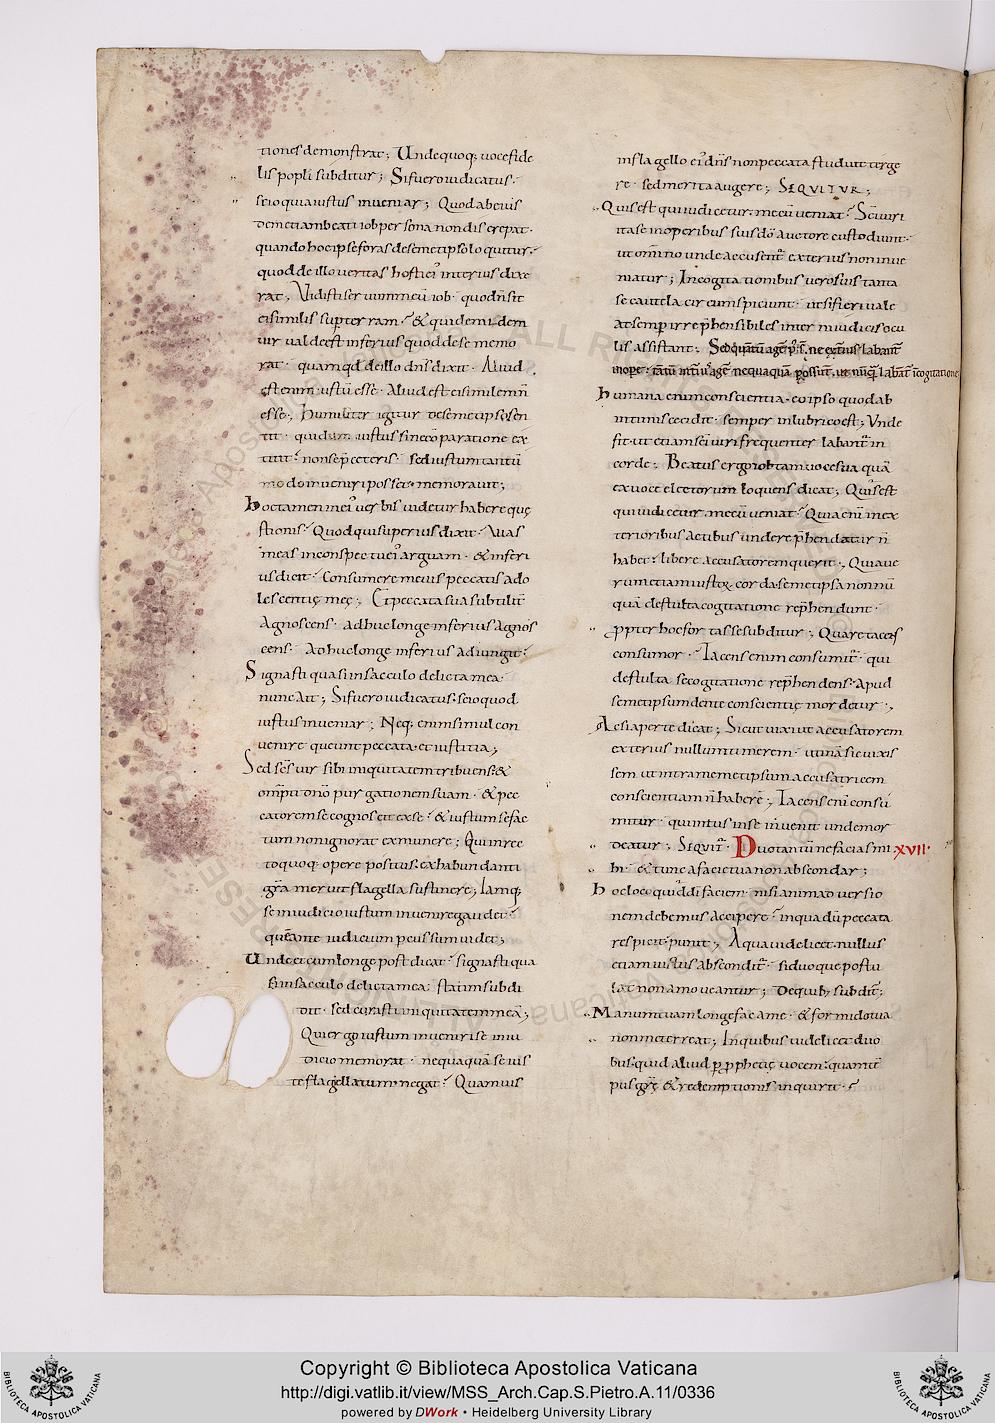 tiones demonstrat; Undequoq; voce fide
lis popli subditur; Si fuero iudicatus.
scio quia iustus inveniar; Quod ab eius
dem etiam beati iob persona non discrepat.
quando hoc ipse foras de semetipso loquitur.
quod de illo veritas hosti ei' interius dixe
rat; Vidisti servum meū iob. quod n̄ sit
ei similis super terram. & quidem idem
vir valde est inferius quod de se memo
rat. quam qd de illo dn̄s dixit. Aliud
est enim iustū esse. Aliud est ei similem n̄
esse; humiliter igitur de semetipso sen
tit. qui dum iustus sine cōparatione ex
titit. non se p̄ ceteris. sed iustum tantū
modo inveniri posse memoravit;
hoc tamen in ei' verbis videtur habere quę
stionis. Quod qui superius dixit. Vias
meas in conspectu ei' arguam. & inferi
us dicit. Consumere me vis peccatis ado
lescentię meę; Et peccata sua subtilit̄
Agnoscens. adhuc longe inferius agnos
cens. Adhuc longe inferius adiungit.
Signasti quasi in sacculo delicta mea.
nunc ait; Si fuero iudicatus. scio quod
iustus inveniar; Neq; enim simul con
venire queunt peccata et iustitia;
Sed sc̄s vir sibi iniquitatem tribuens. &
omp̄ti dn̄o purgationem suam. & pec
catorem se cognoscit ex se. & iustum se fac
tum non ignorat ex munere; Qui in rec
to quoq; opere positus. ex habundanti
gr̄a meruit flagella sustinere; Iamq;
se in iudicio iustum invenire gaudet.
quē ante iudicium percussum videt;
Unde et cum longe post dicat. signasti qua
si in sacculo delicta mea. statim subdi
dit. sed curasti iniquitatem meā;
Qui ergo iustum inveniri se in iu
dicio memorat. nequaquā se ius
te flagellatum negat. Quamvis
in flagello ei' dn̄s non peccata studuit terge
re. sed merita augere; SEQUITUR;
Quis est qui iudicetur mecū veniat. Sc̄i viri
ita se in operibus suis dō auctore custodiunt.
ut omnino unde accusent̄ exterius non inve
niatur; In cogitationibus vero suis tanta
se cautela circumspiciunt. ut si fieri vale
at semp̄ irrep̄hensibiles intern iudicis ocu
lis assistant;
humana enim conscientia eo ipso quod ab
intimis cecidit. semper in lubrico est; Unde
fit. ut etiam sc̄i viri frequenter labant̄ in
corde; Beatus ergo iob tam voce sua quā
ex voce electorum loquens dicat; Quis est
qui iudicetur mecū veniat. Quia eni in ex
terioribus actibus unde rep̄hendatur n̄
habet. libere accusatorem querit; Quia ve
rum etiam iustoꝝ corda semetipsa nonnū
quā de stulta cogitatione rep̄hendunt.
ꝓpter hoc fortasse subditur; Quare tacens
consumor. Tacens enim consumit̄. qui
de stulta se cogitatione rep̄hendens. Apud
semetipsum dente conscientię mordetur;
Ac si aperte dicat; Sicut vixi ut accusatorem
exterius nullum timerem. utinā sic vixis
sem. ut intra memetipsum accusatricem
conscientiam n̄ haberē; Tacens eni consu
mitur. qui intus in se invenit unde mor
deatur; SEQUIT̄. Duo tantū ne facias mi XVII.
hi. et tunc a facie tua non abscondar;
hoc loco quid di faciem. nisi animadversio
nem debemus accipere. in qua dū peccata
respicit. punit; A qua videlicet nullus
etiam iustus abscondit̄. si duo que postu
lat non amoveantur; De quib; subdit̄;
Manum tuam longe fac a me. & formido tua
non me terreat; In quibus videlicet duo
bus. quid aliud per prophetię vocem. quam tē
pus gr̄ę & redemptionis inquirit.
Copyright © Biblioteca Apostolica Vaticana
http://digi.vatlib.it/view/MSS_Arch.Cap.S.Pietro.A.11/0336
powered by DWork • Heidelberg University Library